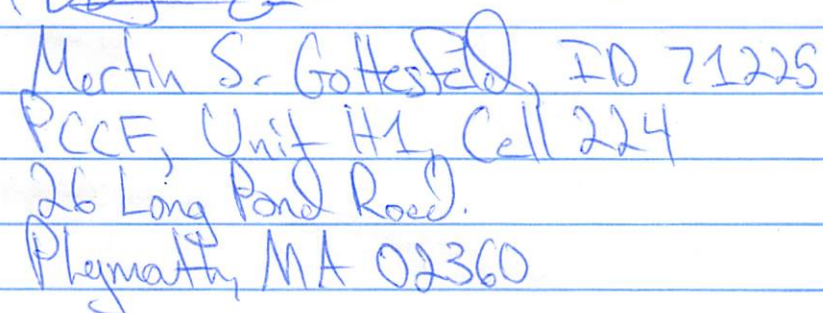 Martin S. Gottesfeld, ID 71225
PCCF, Unit H1, Cell 224
26 Long Pond Road.
Plymouth, MA 02360